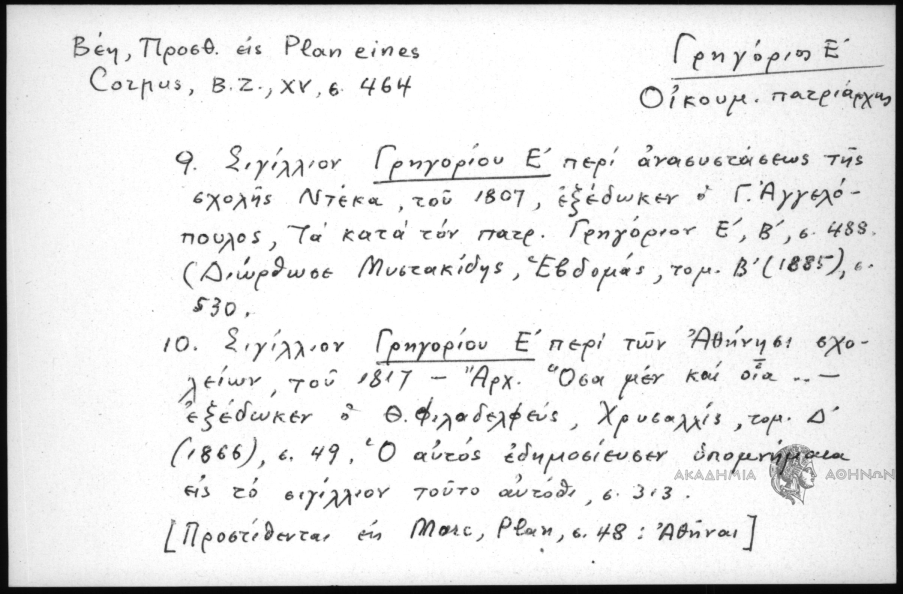 Βέη, Προσθ. εἰς Plan eines
Corpus, B.Z., XV, σ. 464
Γρηγόριος Ε΄
Οἰκουμ. πατριάρχης
9. Σιγίλλιον Γρηγορίου Ε΄ περί ἀνασυστάσεως τῆς
σχολῆς Ντέκα, τοῦ 1807, ἐξέδωκεν ὁ Γ. Ἀγγελό-
πουλος, Τά κατά τόν πατρ. Γρηγόριον Ε΄, Β΄, σ. 488.
(Διώρθωσε Μυστακίδης, Ἑβδομάς, τομ. Β΄ (1885), σ.
530.
10. Σιγίλλιον Γρηγορίου Ε΄ περί τῶν Ἀθήνησι σχο-
λείων, τοῦ 1817 – Ἀρχ. "Ὅσα μέν καί οἷα .. –
ἐξέδωκεν ὁ Θ. Φιλαδελφεύς, Χρυσαλλίς, τομ. Δ΄
(1866), σ. 49. Ὁ αὐτός ἐδημοσίευσεν ὑπομνήματα
εἰς τό σιγίλλιον τοῦτο αὐτόθι, σ. 313.
[Προστίθενται εἰς Marc, Plan, σ. 48 : Ἀθῆναι]
ΑΚΑΔΗΜΙΑ ΑΘΗΝΩΝ